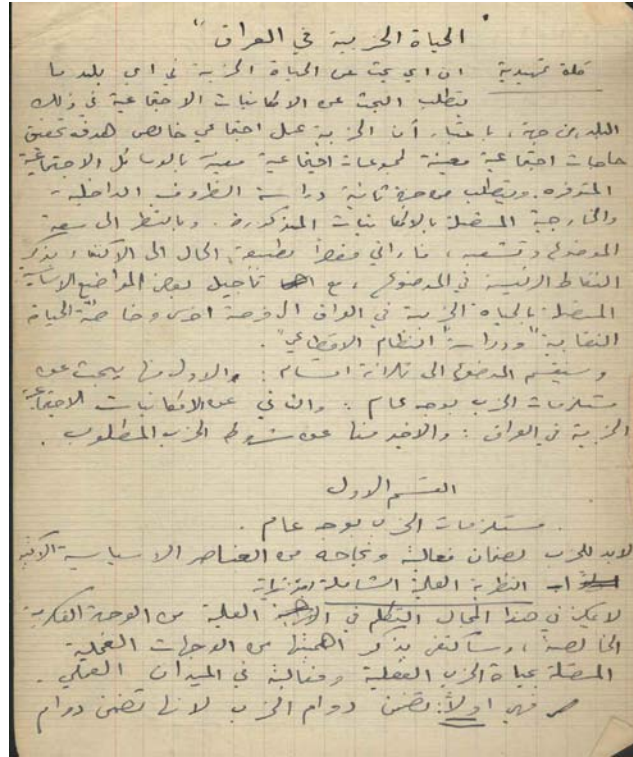 "الحياة الحزبية في العراق"
كلمة تمهيدية ان اي بحث عن الحياة الحزبية في اي بلد ما
يتطلب البحث عن الامكانيات الاجتماعية في ذلك
البلد من جهة، باعتبار أن الحزبية عمل اجتماعي خالص هدفه تحقيق
حاجات اجتماعية معينة لمجموعات اجتماعية معينة بالوسائل الاجتماعية
المتوفرة. ويتطلب من جهة ثانية دراسة الظروف الداخلية
والخارجية المتصلة بالامكانيات المذكورة. وبالنظر الى سعة
الموضوع وتشعبه، فاراني مضطراً بطبيعة الحال الى الاكتفاء بذكر
النقاط الرئيسية في الموضوع، مع تأجيل بعض المواضيع الاساسية
المتصلة بالحياة الحزبية في العراق الى فرصة اخرى وخاصة "الحياة
النقابية" ودراسة "النظام الاقطاعي".
وسيقسم الموضوع الى ثلاثة اقسام: والاول منها يبحث عن
مستلزمات الحزب بوجه عام: والثاني عن الامكانيات الاجتماعية
الحزبية في العراق: والاخير منها عن شروط الحزب المطلوب.
القسم الاول
مستلزمات الحزب بوجه عام.
لابد للحزب لضمان فعاليته ونجاحه من العناصر الاساسية الآتية
النظرية العلمية الشاملة
لا يمكن في هذا المجال التكلم في العلمية من الوجهة الفكرية
الخالصة، وسأكتفي بذكر اهميتها من الوجهات العملية
المتصلة بحياة الحزب الفعلية وفعاليته في الميدان العملي.
فهي اولاً: تضمن دوام الحزب لانها تضمن دوام